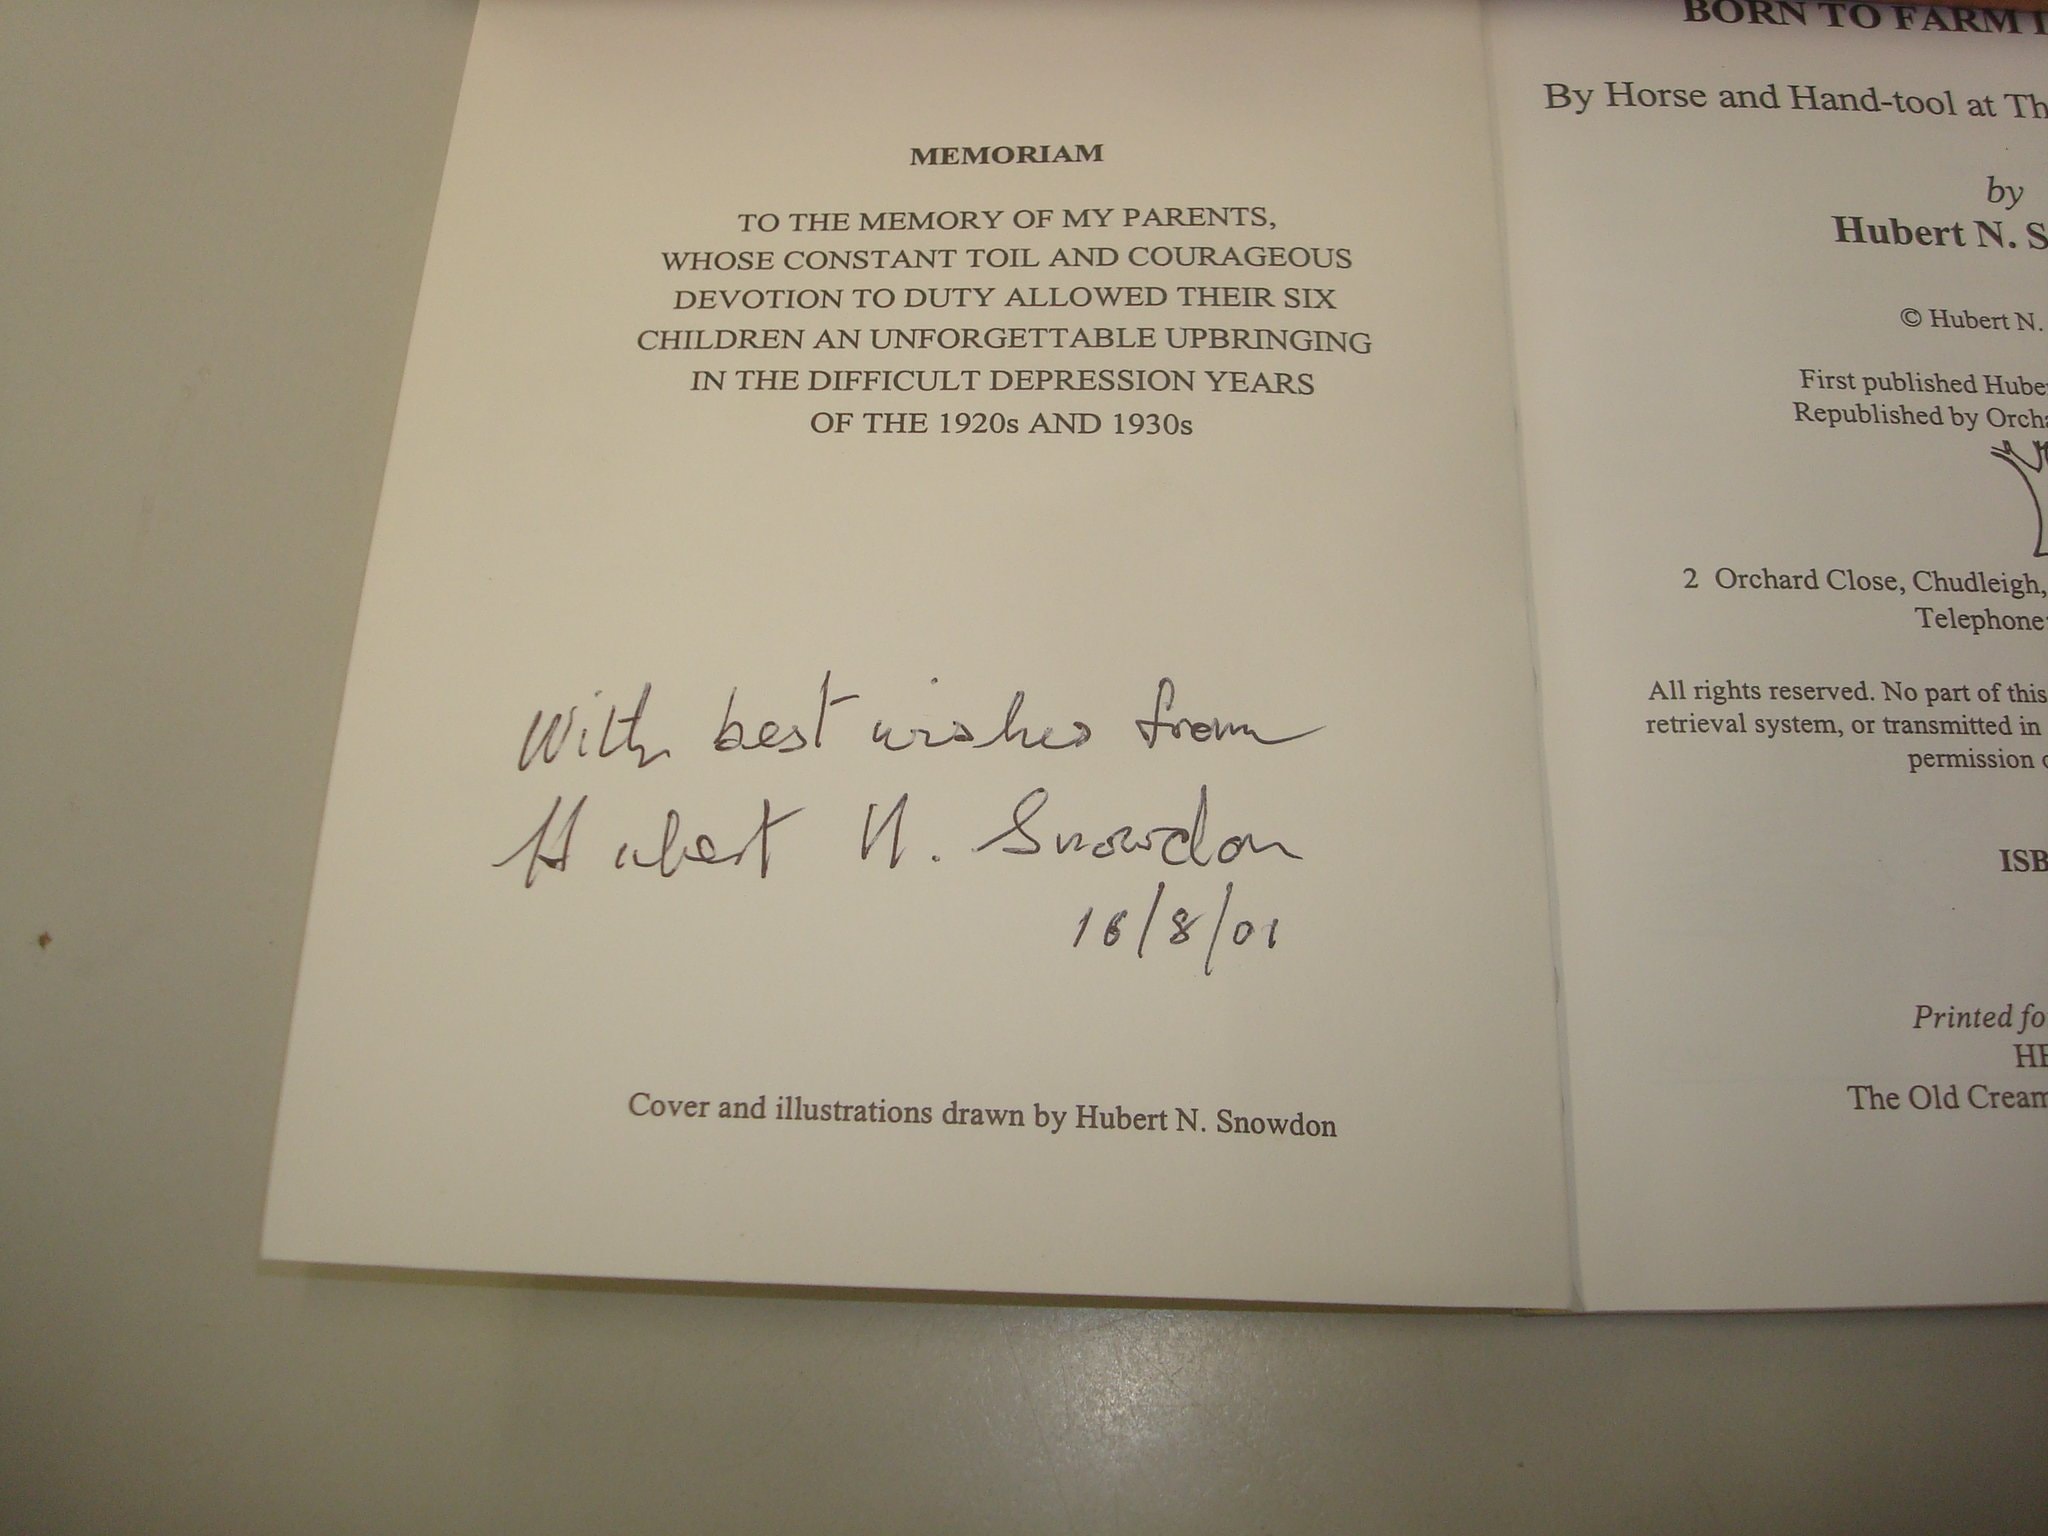 MEMORIAM
TO THE MEMORY OF MY PARENTS,
WHOSE CONSTANT TOIL AND COURAGEOUS
DEVOTION TO DUTY ALLOWED THEIR SIX
CHILDREN AN UNFORGETTABLE UPBRINGING
IN THE DIFFICULT DEPRESSION YEARS
OF THE 1920s AND 1930s
With best wishes from
Hubert N. Snowdon
16/8/01
Cover and illustrations drawn by Hubert N. Snowdon
BORN TO FARM
By Horse and Hand-tool at
by
Hubert N.
© Hubert N.
First published
Republished by
2 Orchard Close, Chudleigh,
Telephone
All rights reserved. No part of this
retrieval system, or transmitted in
permission
Printed
The Old